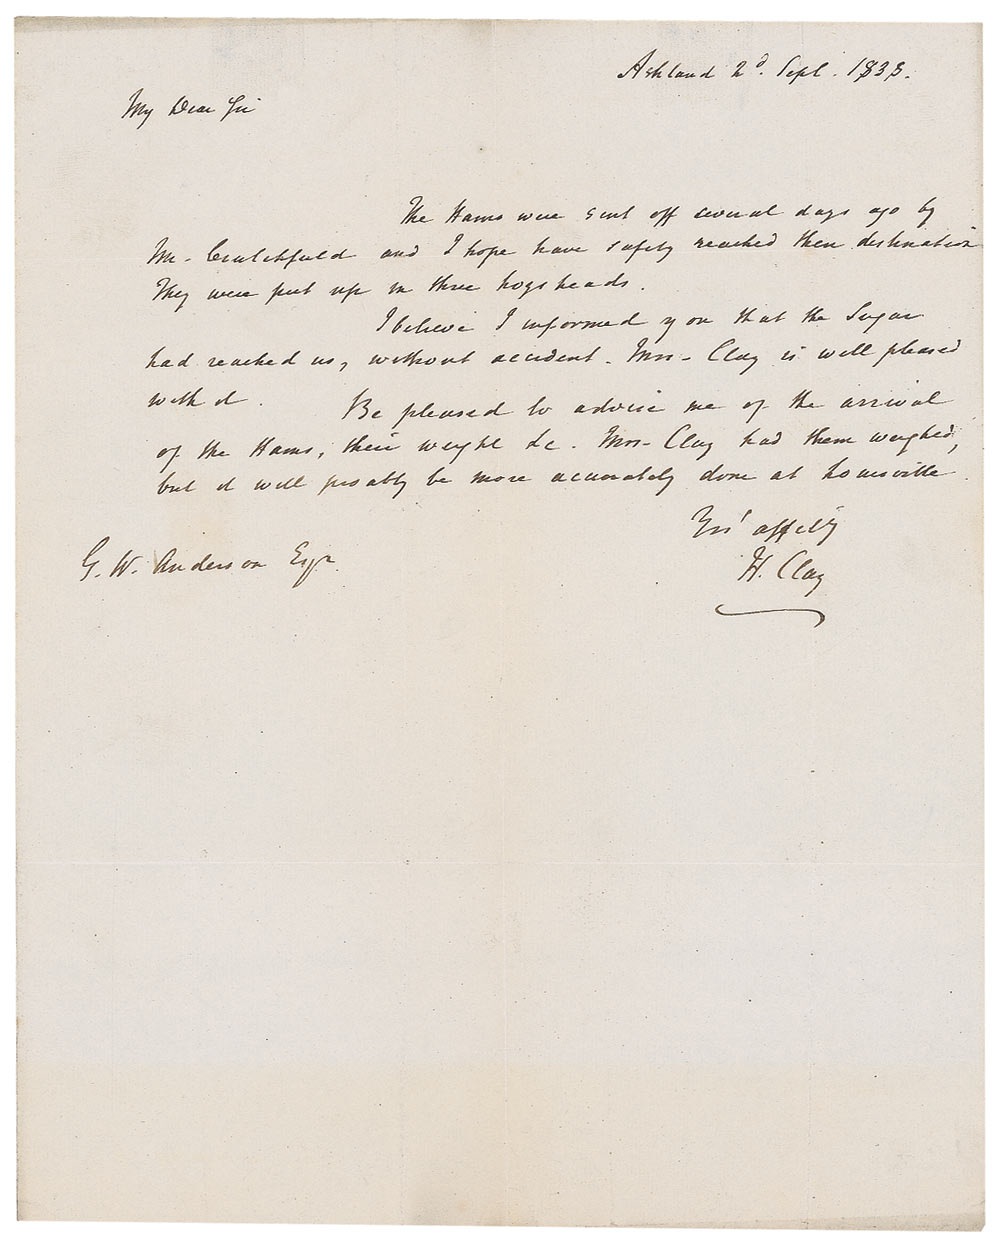 Ashland 2d. Sept. 1838.
My Dear Sir
The Hams were sent off several days ago by
Mr. Crutchfield and I hope have safely reached their destination
They were put up in three hogsheads.
I believe I informed you that the Sugar
had reached us, without accident. Mrs. Clay is well pleased
with it. Be pleased to advise me of the arrival
of the Hams, their weight &c. Mrs. Clay had them weighed,
but it will probably be more accurately done at Louisville.
Yrs' affetly
H. Clay
G. W. Anderson Esqr.